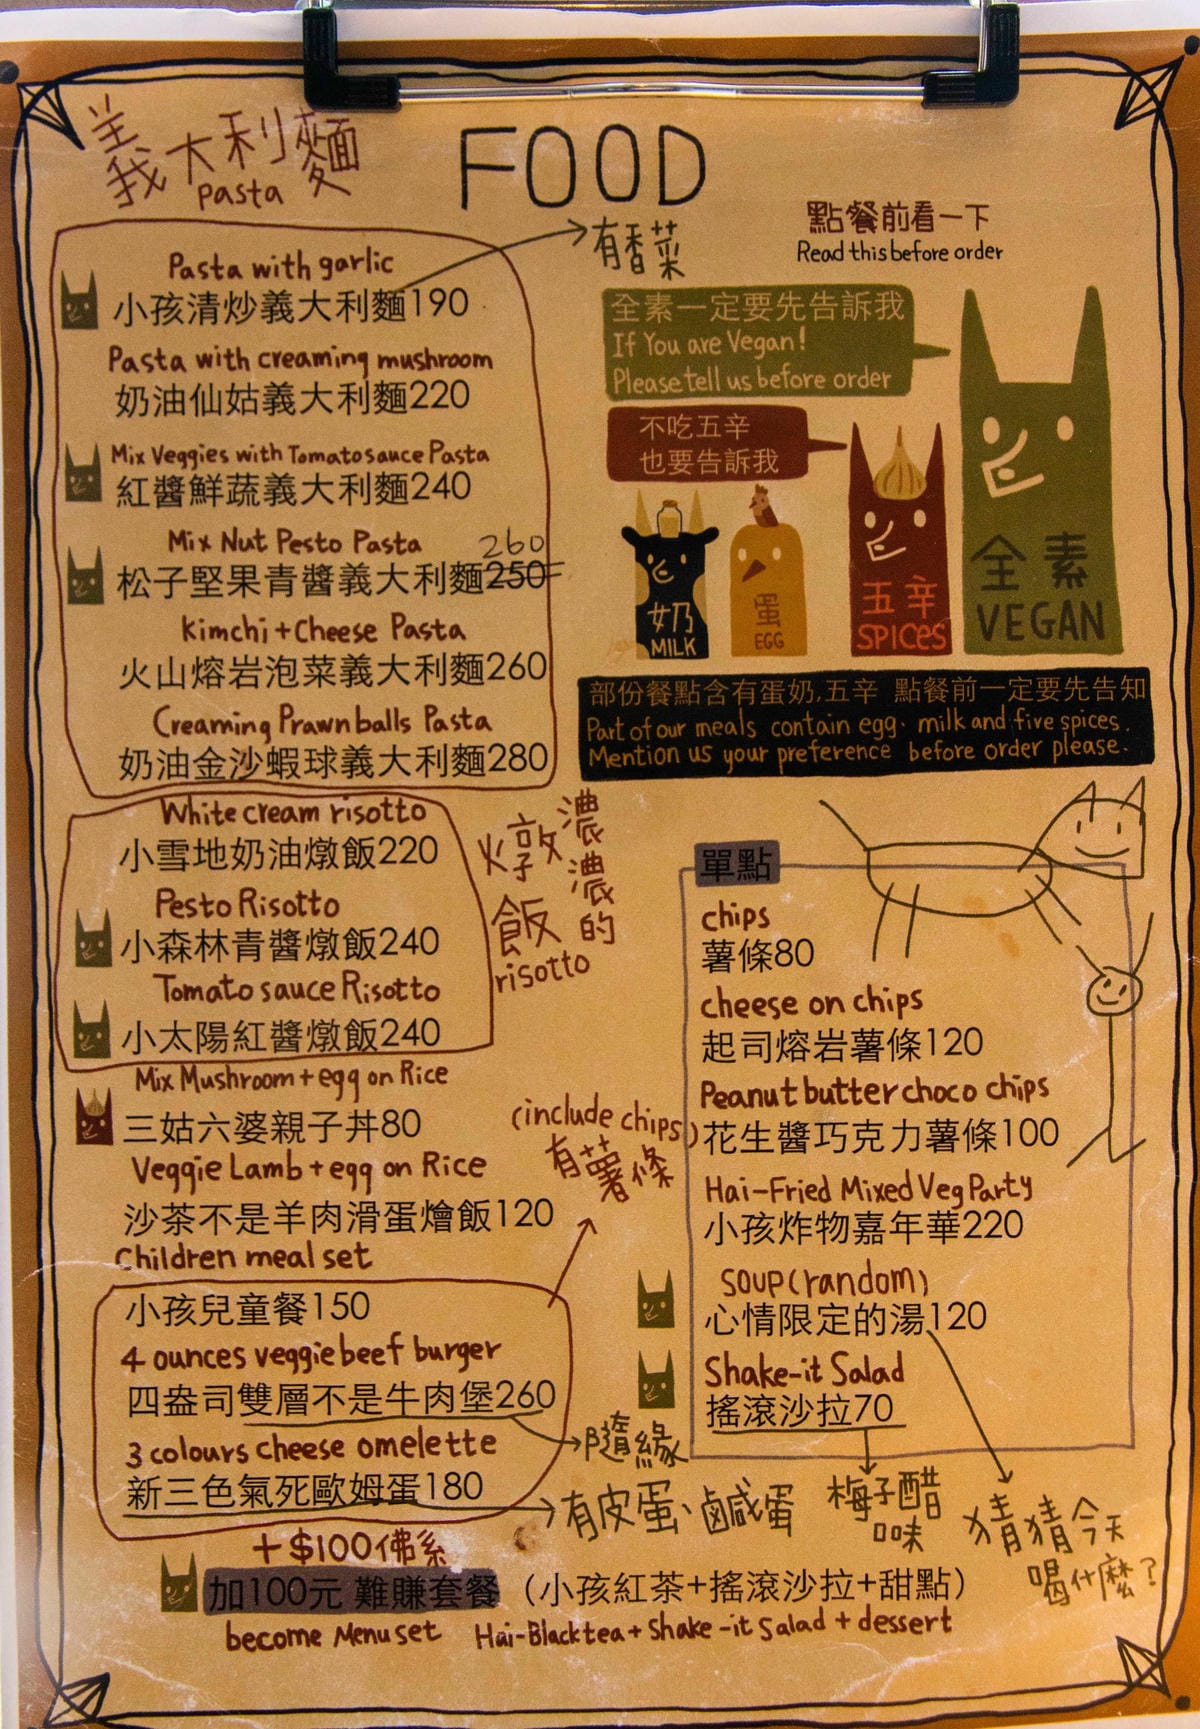 義大利麵
Pasta
FOOD
點餐前看一下
Read this before order
Pasta with garlic
小孩清炒義大利麵190
有香菜
Pasta with creaming mushroom
奶油仙姑義大利麵220
Mix Veggies with Tomato sauce Pasta
紅醬鮮蔬義大利麵240
Mix Nut Pesto Pasta
260
松子堅果青醬義大利麵250
Kimchi+Cheese Pasta
火山熔岩泡菜義大利麵260
Creaming Prawnballs Pasta
奶油金沙蝦球義大利麵280
全素一定要先告訴我
If You are Vegan!
Please tell us before order
不吃五辛
也要告訴我
奶
MILK
蛋
EGG
五辛
SPICES
全素
VEGAN
部份餐點含有蛋奶,五辛 點餐前一定要先告知
Part of our meals contain egg. milk and five spices.
Mention us your preference before order please.
White cream risotto
小雪地奶油燉飯220
Pesto Risotto
小森林青醬燉飯240
Tomato sauce Risotto
小太陽紅醬燉飯240
濃濃的
燉飯
risotto
Mix Mushroom+egg on Rice
三姑六婆親子丼80
Veggie Lamb+egg on Rice
沙茶不是羊肉滑蛋燴飯120
Children meal set
小孩兒童餐150
(include chips)
有薯條
4 ounces veggie beef burger
四盎司雙層不是牛肉堡260
隨緣
3 colours cheese omelette
新三色氣死歐姆蛋180
有皮蛋、鹹蛋
單點
chips
薯條80
cheese on chips
起司熔岩薯條120
Peanut butter choco chips
花生醬巧克力薯條100
Hai-Fried Mixed Veg Party
小孩炸物嘉年華220
SOUP(random)
心情限定的湯120
Shake-it Salad
搖滾沙拉70
梅子醋
口味
猜猜今天
喝什麼?
+$100佛系
加100元 難賺套餐 (小孩紅茶+搖滾沙拉+甜點)
become Menu set Hai-Black tea + Shake-it Salad + dessert